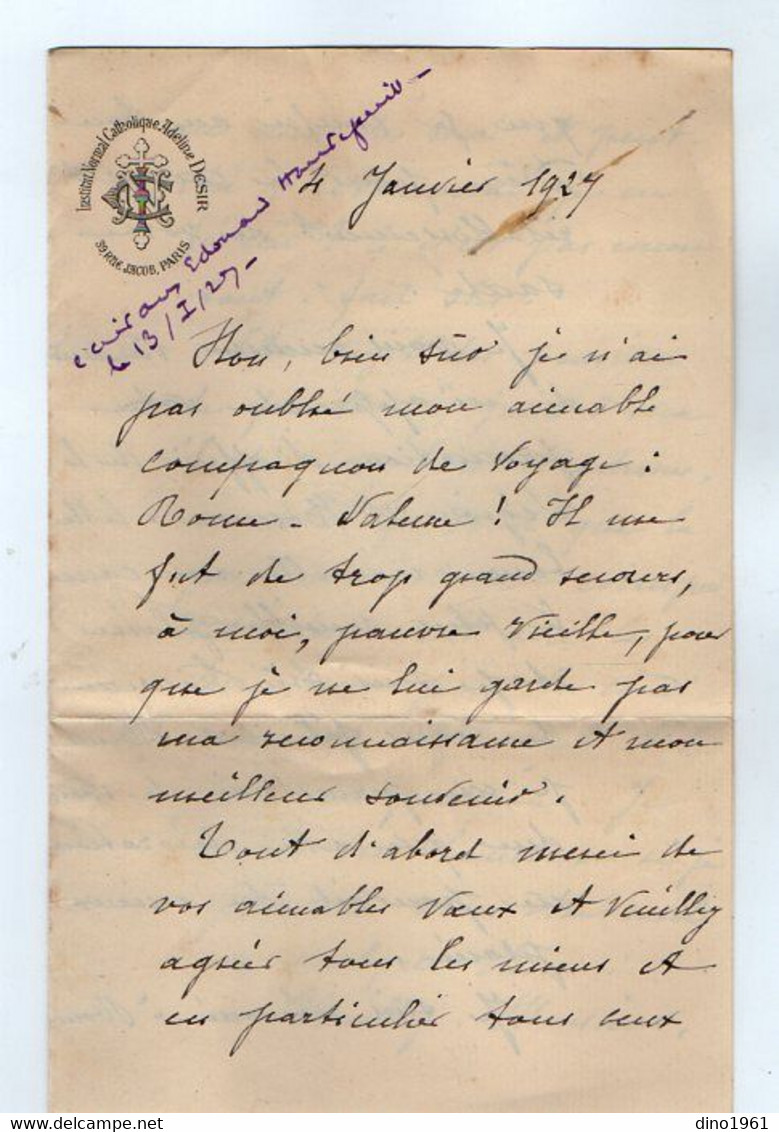 Institut Normal Catholique Adeline DESIR
39 RUE JACOB, PARIS
Edouard
le 13/I/27 –
4 Janvier 1927
Non, bien sûr je n'ai
pas oublié mon aimable
compagnon de voyage :
Rome – ! Il me
fut de trop grand secours,
à moi, pauvre vieille, pour
que je ne lui garde pas
ma reconnaissance et mon
meilleur souvenir.
Tout d'abord merci de
vos aimables vœux et veuillez
agréer tous les miens et
en particulier tous ceux
dino1961